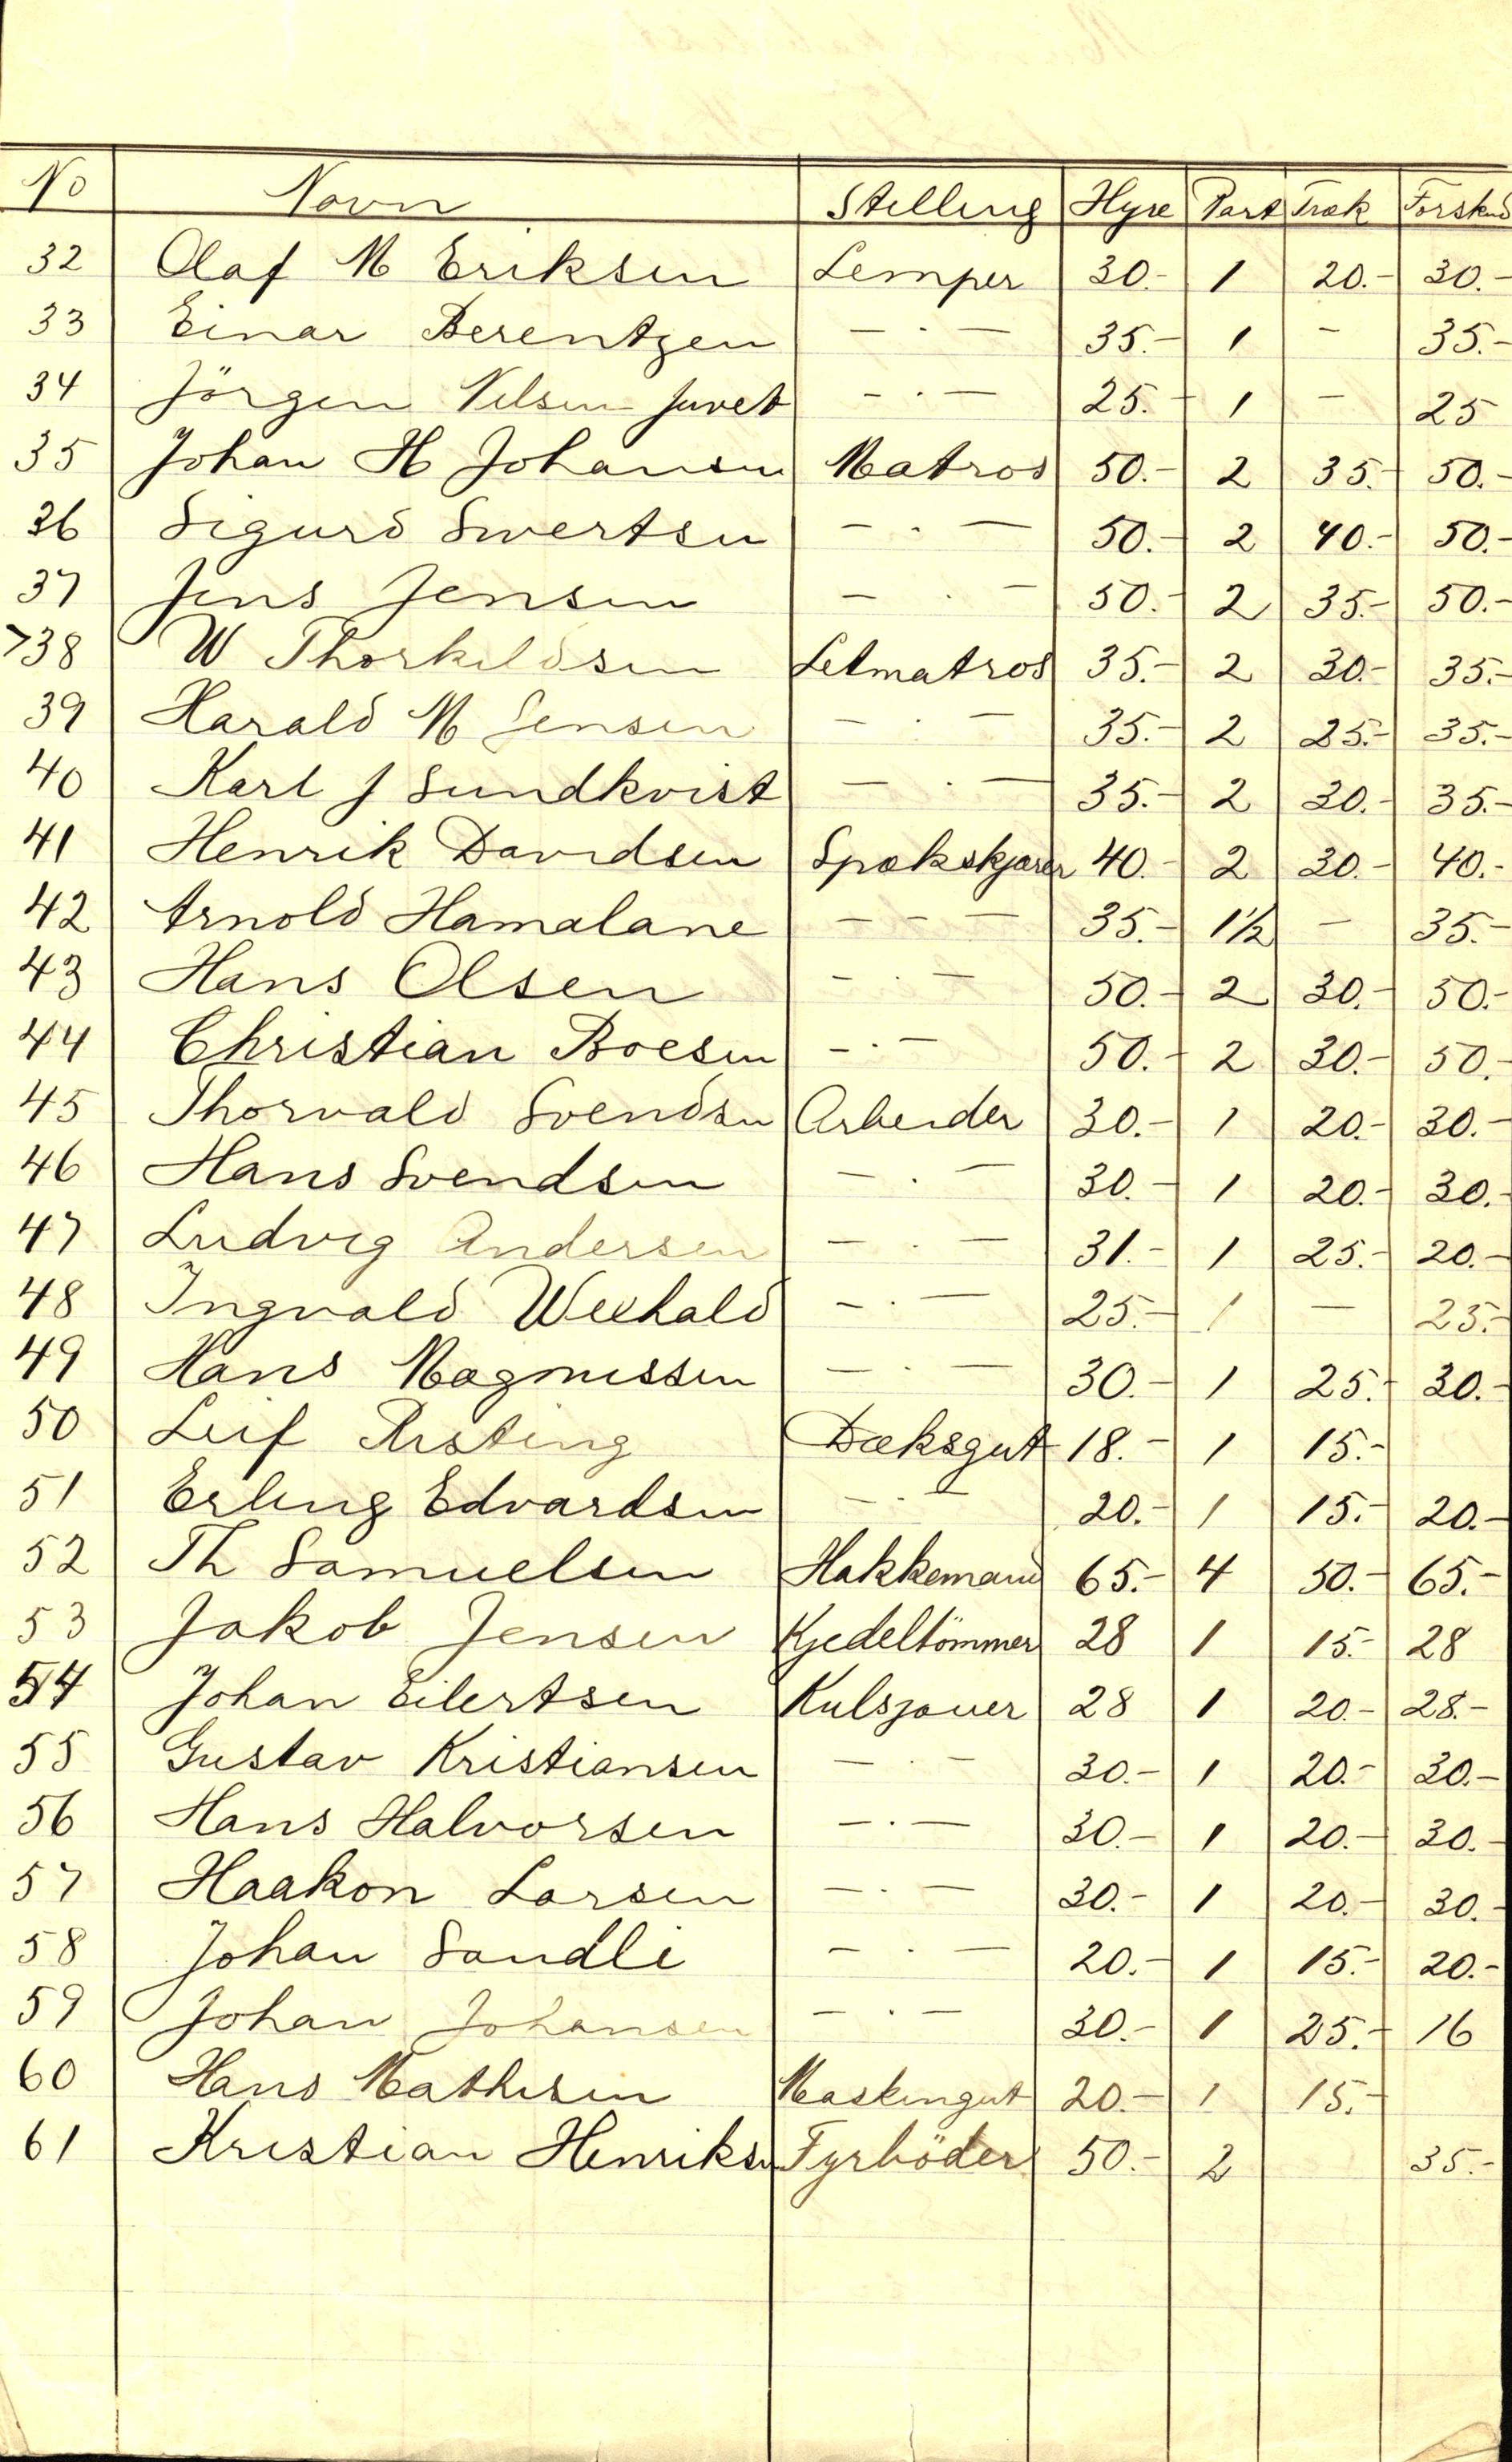 No Navn Stilling Hyre Part Træk Forskud
32 Olaf M Eriksen Lemper 30.- 1 20.- 30.-
33 Einar Berentzen — . — 35.- 1 - 35.-
34 Jörgen Nilsen Juvet — . — 25.- 1 - 25
35 Johan H Johansen Matros 50.- 2 35.- 50.-
36 Sigurd Sivertsen — . — 50.- 2 40.- 50.-
37 Jens Jensen — . — 50.- 2 35.- 50.-
38 W Thorkildsen Letmatros 35.- 2 30.- 35.-
39 Harald M Jensen — . — 35.- 2 25.- 35.-
40 Karl J Sundkvist — . — 35.- 2 30.- 35.-
41 Henrik Davidsen Spækskjærer 40.- 2 30.- 40.-
42 Arnold Hamalane — - — 35.- 1½ — 35.-
43 Hans Olsen — . — 50.- 2 30.- 50.-
44 Christian Boesen — . — 50.- 2 30.- 50.-
45 Thorvald Svendsen Arbeider 30.- 1 20.- 30.-
46 Hans Svendsen — . — 30.- 1 20.- 30.-
47 Ludvig Andersen — . — 31.- 1 25.- 20.-
48 Ingvald — . — 25.- 1 — 25.-
49 Hans Magnussen — . — 30.- 1 25.- 30.-
50 Leif Risting Dæksgut 18.- 1 15.-
51 Erling Edvardsen — . — 20.- 1 15.- 20.-
52 Th Samuelsen Hakkemand 65.- 4 50.- 65.-
53 Jakob Jensen Kjedeltömmer 28 1 15.- 28
54 Johan Eilertsen Kulsjauer 28 1 20.- 28.-
55 Gustav Kristiansen — . — 30.- 1 20.- 30.-
56 Hans Halvorsen — . — 30.- 1 20.- 30.-
57 Haakon Larsen — . — 30.- 1 20.- 30.-
58 Johan Sandli — . — 20.- 1 15.- 20.-
59 Johan Johansen — . — 30.- 1 25.- 16
60 Hans Mathisen Maskingut 20.- 1 15.-
61 Kristian Henriksen Fyrböder 50.- 2 35.-